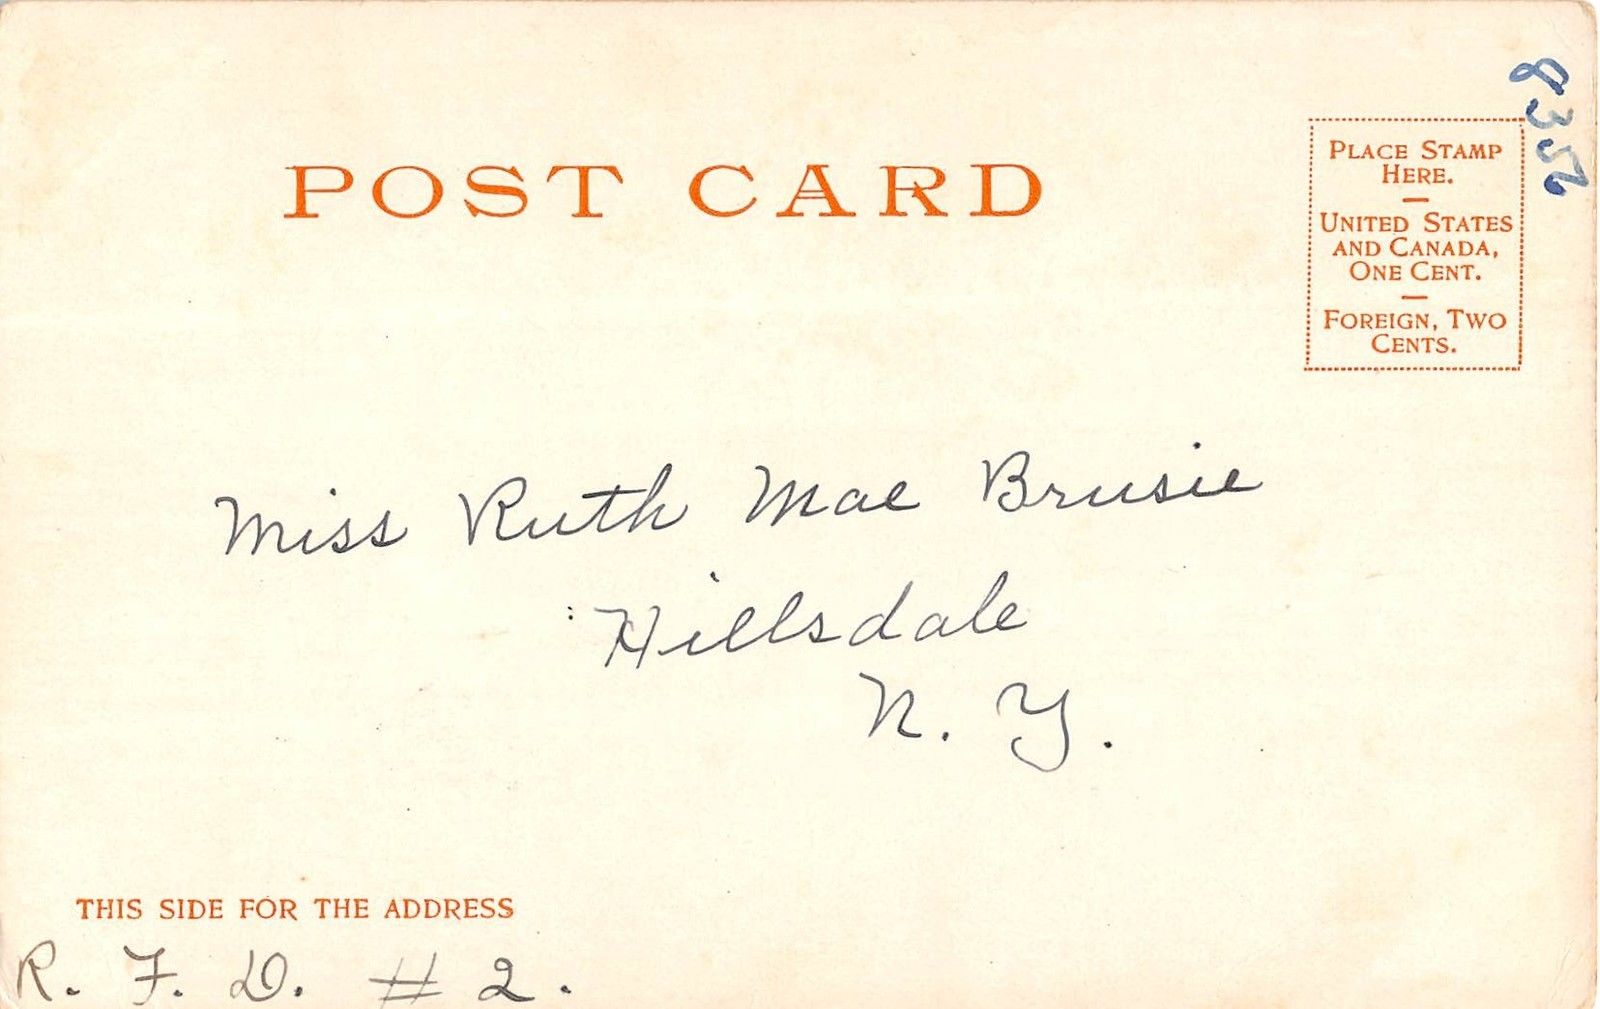 POST CARD
PLACE STAMP
HERE.
UNITED STATES
AND CANADA,
ONE CENT.
FOREIGN, TWO
CENTS.
Miss Ruth Mae Brusie
Hillsdale
N. Y.
THIS SIDE FOR THE ADDRESS
R. F. D. # 2.